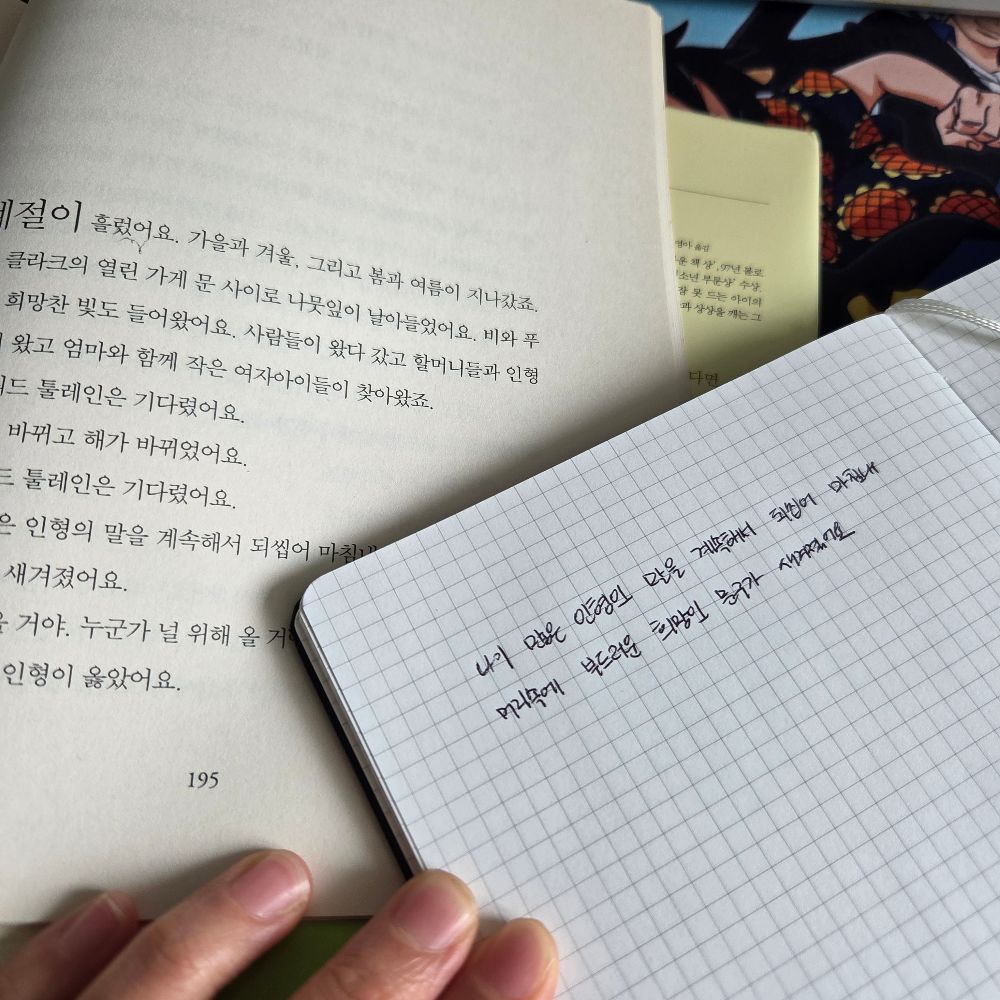 계절이 흘렀어요. 가을과 겨울, 그리고 봄과 여름이 지나갔죠.
클라크의 열린 가게 문 사이로 나뭇잎이 날아들었어요. 비와 푸
희망찬 빛도 들어왔어요. 사람들이 왔다 갔고 할머니들과 인형
왔고 엄마와 함께 작은 여자아이들이 찾아왔죠.
툴레인은 기다렸어요.
바뀌고 해가 바뀌었어요.
드 툴레인은 기다렸어요.
은 인형의 말을 계속해서 되씹어 마침내
새겨졌어요.
거야. 누군가 널 위해 올 거
인형이 옳았어요.
195
영아 옮김
책 상', 97년 볼로
소년 부문상' 수상.
잠 못 드는 아이의
과 상상을 깨는 그
다면
나이 많은 인형의 말을 계속해서 되씹어 마침내
머리속에 부드러운 희망의 문구가 새겨졌어요